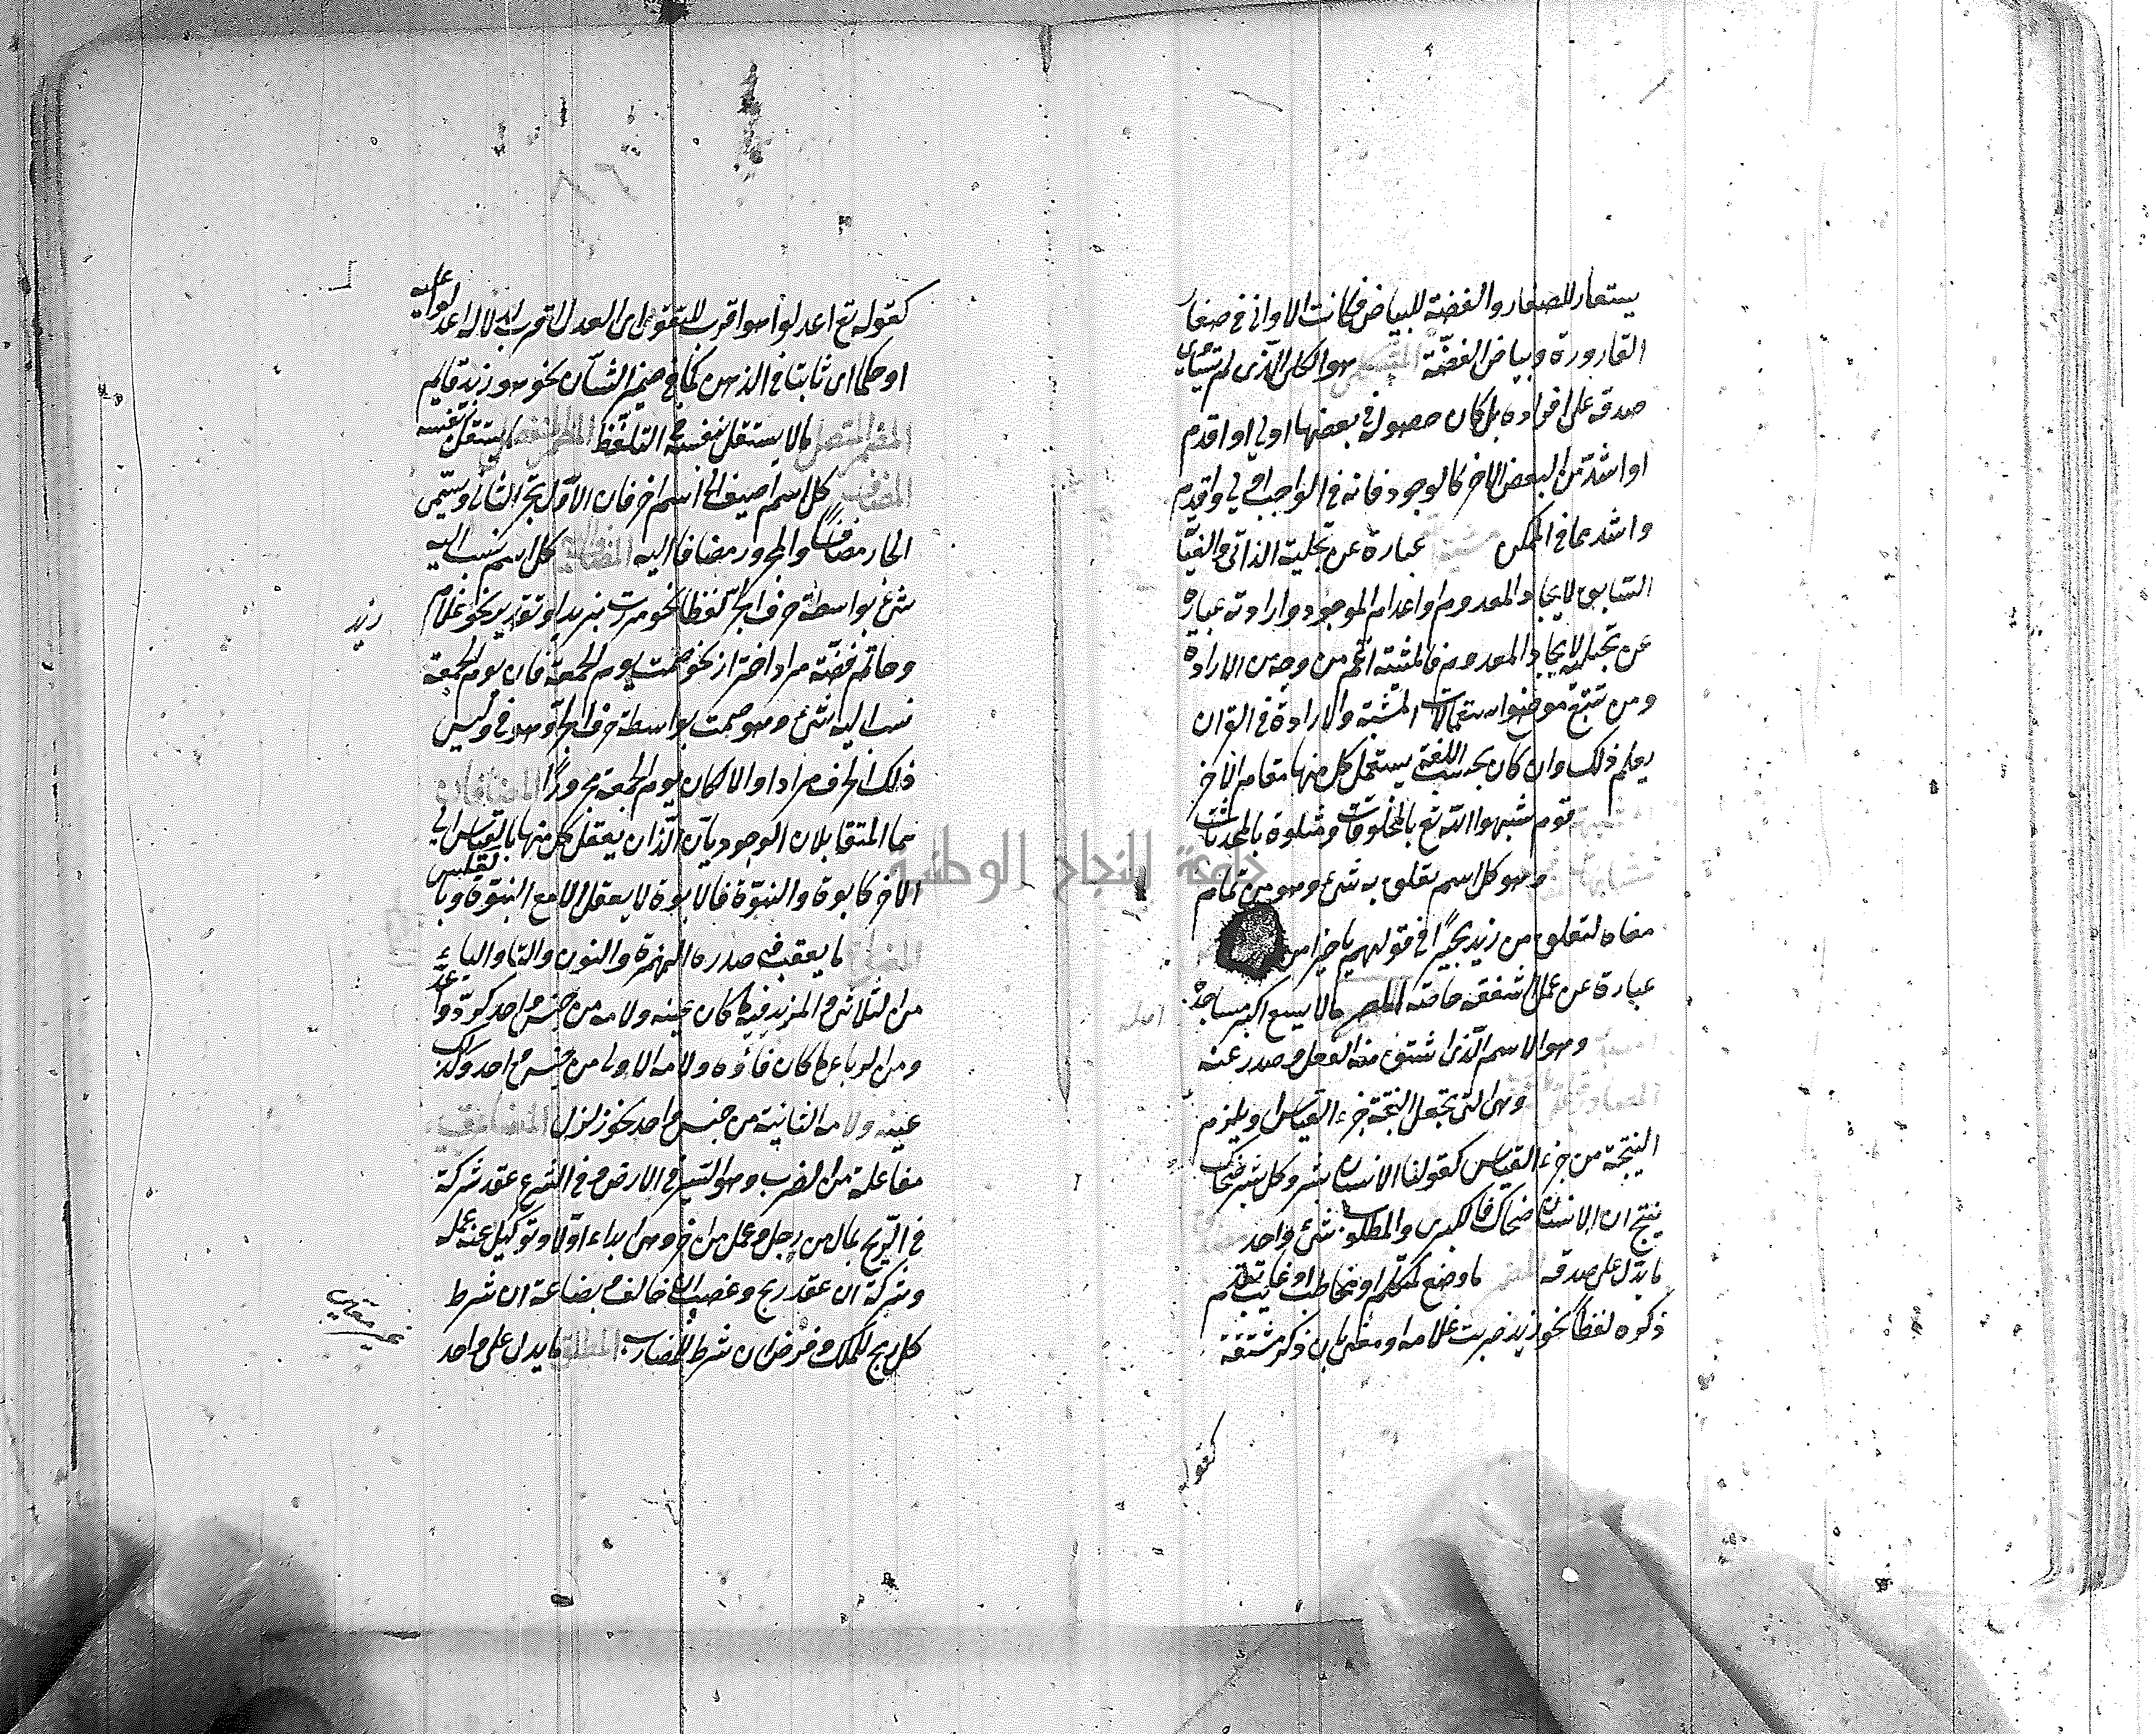 يستعار للصغار والفضة للبياض فكانت الاواني في صفاء
القارورة وبياض الفضّة المشكك هو الكلي الّذي لم يتساوى
صدقه على افراده بل كان حصوله في بعضها اولى او اقدم
او اشدّ من البعض الاخر كالوجود فانه في الواجب اولى واقدم
واشد مما في الممكن مشية عبارة عن تجلية الذاتي والعناية
السابق لايجاد المعدوم او اعدام الموجود وارادته عبارة
عن تجليه لايجاد المعدوم فالمشية اعم من وجه من الارادة
ومن تتبع موضع استعمالات المشية والارادة في القران
يعلم ذلك وان كان بحسب اللغة يستعمل كل منهما مقام الاخر
قوم شبهوا الله تع بالمخلوقات ومثلوه بالمحدثات
وهو كل اسم تعلق به شئ وهو من تمام
معناه لتعلق من زيد بخيرًا في قولهم يا خيرا من
عبارة عن عمل شفقه خاصة المصر مالا يسع اكبر مساجده
وهو الاسم الّذي اشتق منه الفعل وصدر عنه
المصادرة وهي التي تجعل النتيجة جزء القياس او يلزم
النتيجة من جزء القياس كقولنا الانسان بشر وكل بشر ضحاك
ينتج ان الانسان ضحاك فالكبرى والمطلوب شئ واحد
ما يدّل على صدقه ما وضع لمتكلم او مخاطب او غايب تقدم
ذكره لفظا نحو زيد ضربت غلامه او معنى بان ذكر مشتقه
كقوله
كقوله تع اعدلوا هو اقرب للتقوى اي العدل اقرب لدلالة اعدلوا عليه
او حكما اي ثابتا في الذهن كما في ضمير الشأن نحو هو زيد قايم
المضمر المتصل مالا يستقل بنفسه في التلفّظ المضمر المنفصل ما يستقل بنفسه
المضاف كل اسم اضيف الى اسم اخر فان الاوّل يجر الثاني ويسمّى
الجار مضافًا والمجرور مضافا اليه المضاف اليه كل اسم نسب اليه
شئ بواسطة حرف الجر لفظا نحو مررت بزيد او تقديرا نحو غلام
زيد
وخاتم فضّة مرادا احتراز نحو صمت يوم الجمعة فان يوم الجمعة
نسب اليه شئ وهو صمت بواسطة حرف الجر وهو في وليس
ذلك الحرف مرادا والا لكان يوم الجمعة مجرورًا المتضايفان
هما المتقابلان الوجوديان الّذان يعقل كل منهما بالقياس الى
الاخر كابوة والبنوة فالابوة لا يعقل الا مع البنوة وبالعكس
المضارع ما يعقب في صدره الهمزة والنون والتا والياء
من الثلاثي والمزيد فيه ما كان عينه ولامه من جنس واحد كردّ واعدّ
ومن الرباعي ما كان فاؤه ولامه الاولى من جنس واحد وكذلك
عينه ولامه الثانية من جنس واحد نحو زلزل المضاربة
مفاعلة من الضرب وهو السير في الارض وفي الشرع عقد شركة
في الربح بمال من رجل وعمل من اخر وهي ايداع اوّلا وتوكيل عند عمله
وشركة ان عقد ربح وغصب ان خالف وبضاعة ان شرط
كل ربح للمالك وقرض ان شرط للمضارب المطلق ما يدل على واحد
غير معين
جامعة النجاح الوطنية